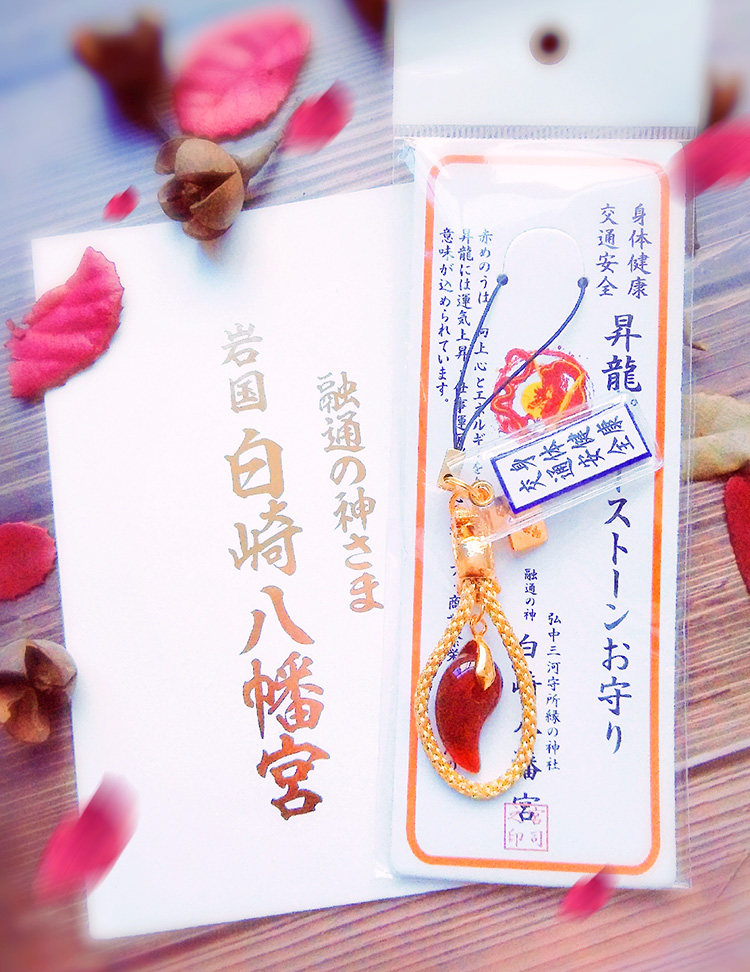 融通の神さま
岩国 白崎八幡宮
身体健康
交通安全
昇龍
ストーンお守り
赤めのうは 向上心とエネルギーを
昇龍には運気上昇 仕事運
意味が込められています。
身体健康
交通安全
弘中三河守所縁の神社
融通の神 白崎八幡宮
宮司
之印